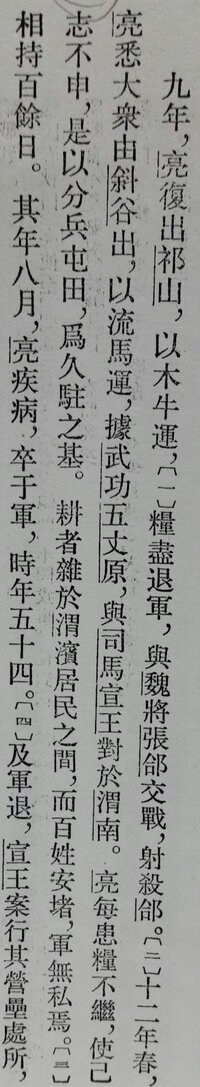 九年，亮復出祁山，以木牛運，〔一〕糧盡退軍，與魏將張郃交戰，射殺郃。〔二〕十二年春，
亮悉大衆由斜谷出，以流馬運，據武功五丈原，與司馬宣王對於渭南。亮每患糧不繼，使己
志不申，是以分兵屯田，爲久駐之基。耕者雜於渭濱居民之間，而百姓安堵，軍無私焉。〔三〕
相持百餘日。其年八月，亮疾病，卒于軍，時年五十四。〔四〕及軍退，宣王案行其營壘處所，